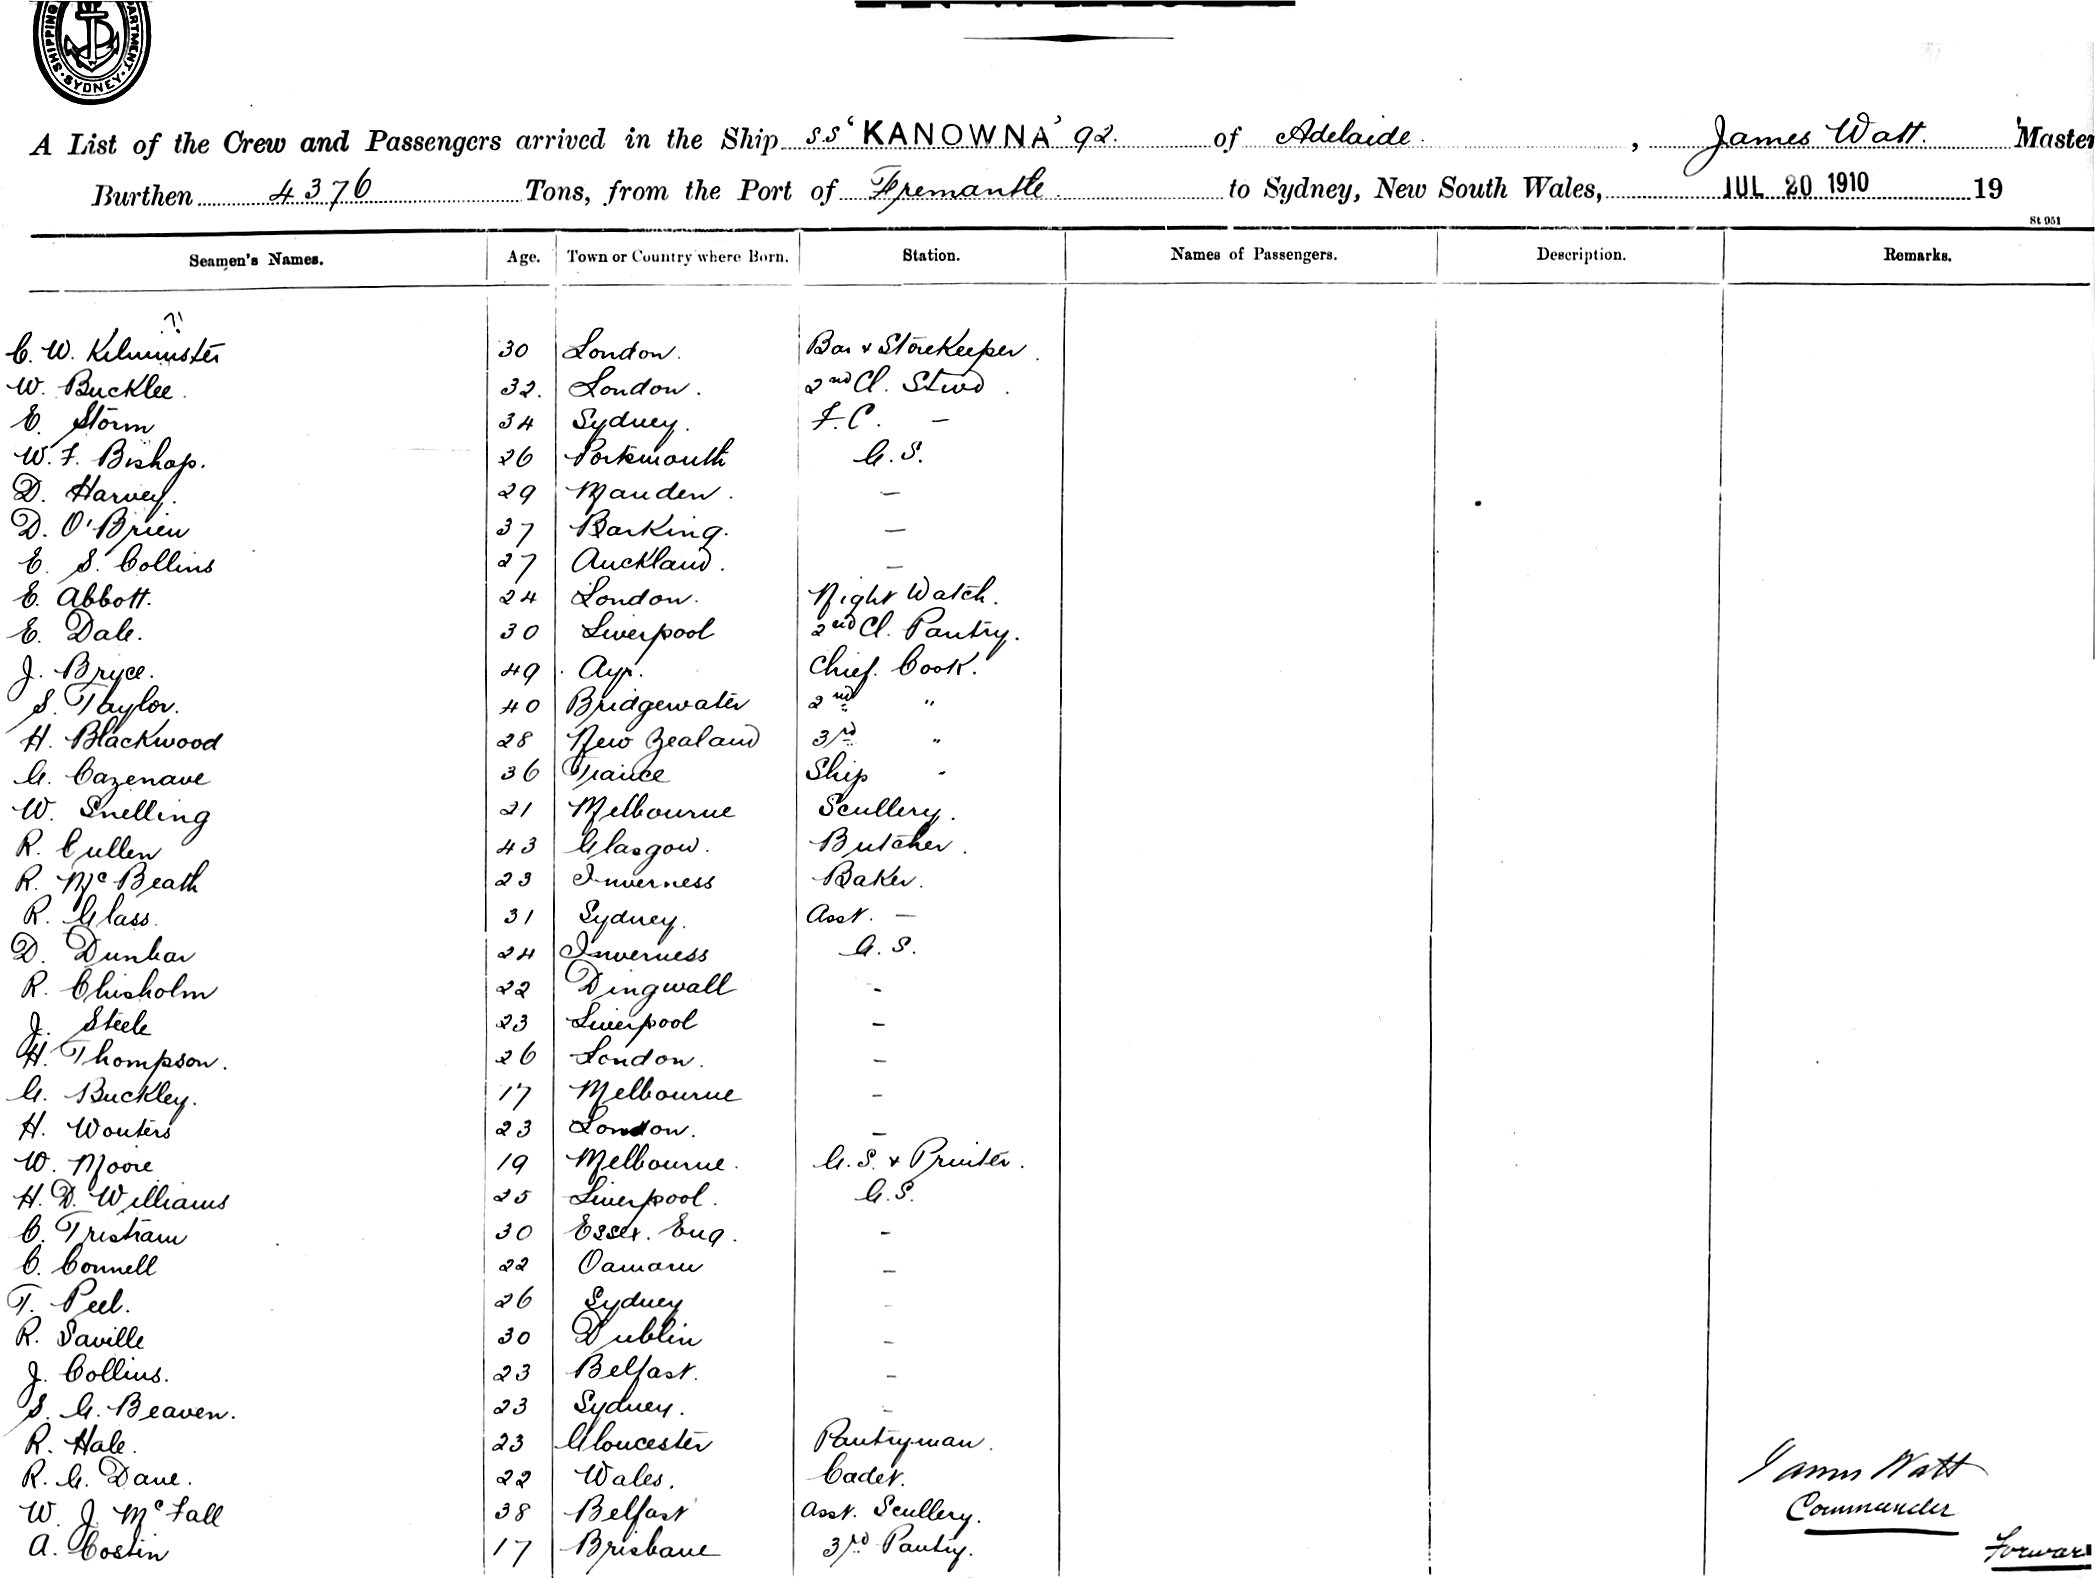 SHIPPING DEPARTMENT SYDNEY
A List of the Crew and Passengers arrived in the Ship SS 'KANOWNA' 92. of Adelaide, James Watt. Master
Burthen 4376 Tons, from the Port of Fremantle to Sydney, New South Wales, JUL 20 1910 19
St 951
Seamen's Names. Age. Town or Country where Born. Station. Names of Passengers. Description. Remarks.
C. W. Kilminster 30 London. Bar & StoreKeeper.
W. Bucklee. 32. London. 2nd Cl. Stwd.
E. Storm 34 Sydney. F.C. —
W. F. Bishop. 26 Portsmouth G.S.
D. Harvey. 29 —
D. O'Brien 37 Barking. —
E. S. Collins 27 Auckland. —
E. Abbott. 24 London. Night Watch.
E. Dale. 30 Liverpool 2nd Cl. Pantry.
J. Bryce. 49 Ayr. Chief. Cook.
S. Taylor. 40 Bridgewater 2nd "
H. Blackwood 28 New Zealand 3rd "
G. Cazenave 36 France Ship "
W. Snelling 21 Melbourne Scullery.
R. Cullen 43 Glasgow. Butcher.
R. McBeath 23 Inverness Baker.
R. Glass. 31 Sydney. Asst. —
D. Dunbar 24 Inverness G.S.
R. Chisholm 22 Dingwall -
J. Steele 23 Liverpool -
H. Thompson. 26 London. -
G. Buckley. 17 Melbourne -
H. Wouters 23 London. -
W. Moore 19 Melbourne. G.S. & Printer.
H. D. Williams 25 Liverpool. G.S.
C. Tristram 30 Essex. Eng. -
C. Connell 22 Oamaru -
T. Peel. 26 Sydney -
R. Saville 30 Dublin -
J. Collins. 23 Belfast. -
S. G. Beaven. 23 Sydney. -
R. Hale. 23 Gloucester Pantryman.
R. G. Dane. 22 Wales. Cadet.
James Watt
W. J. McFall 38 Belfast Asst. Scullery.
Commander
A. Costin 17 Brisbane 3rd Pantry.
Forwar